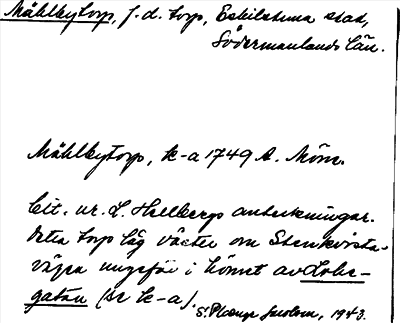 Mählbytorp, f.d. torp, Eskilstuna stad,
Södermanlands län.
Mählbytorp, k-a 1749 A. Möm.
Cit. ur L. Hellbergs anteckningar.
Detta torp låg väster om Stenkvista-
vägen ungefär i hörnet av Lohe-
gatan (se k-a).
1943.